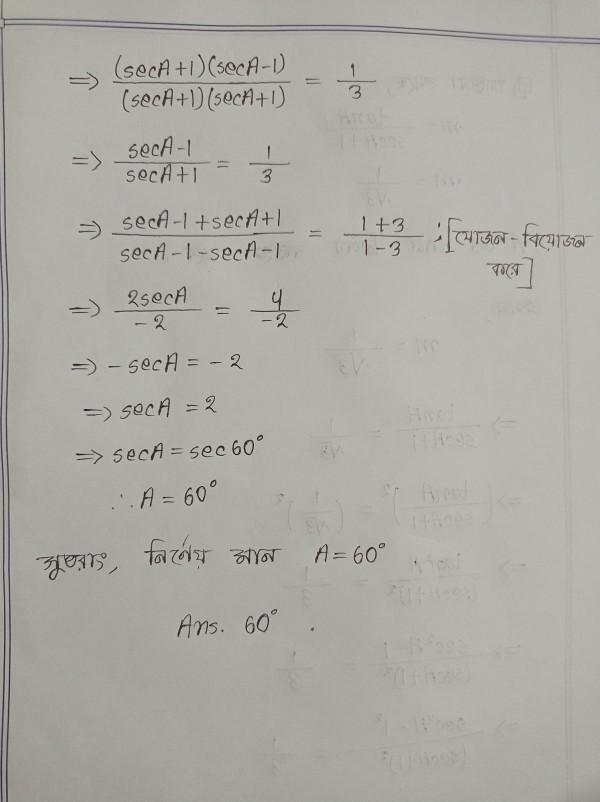 ⇒ (secA+1)(secA-1) / (secA+1)(secA+1) = 1/3
⇒ secA-1 / secA+1 = 1/3
⇒ secA-1+secA+1 / secA-1-secA-1 = 1+3 / 1-3 ; [যোজন-বিয়োজন
করে]
⇒ 2secA / -2 = 4 / -2
⇒ -secA = -2
⇒ secA = 2
⇒ secA = sec60°
∴ A = 60°
সুতরাং, নির্ণেয় মান A=60°
Ans. 60° .